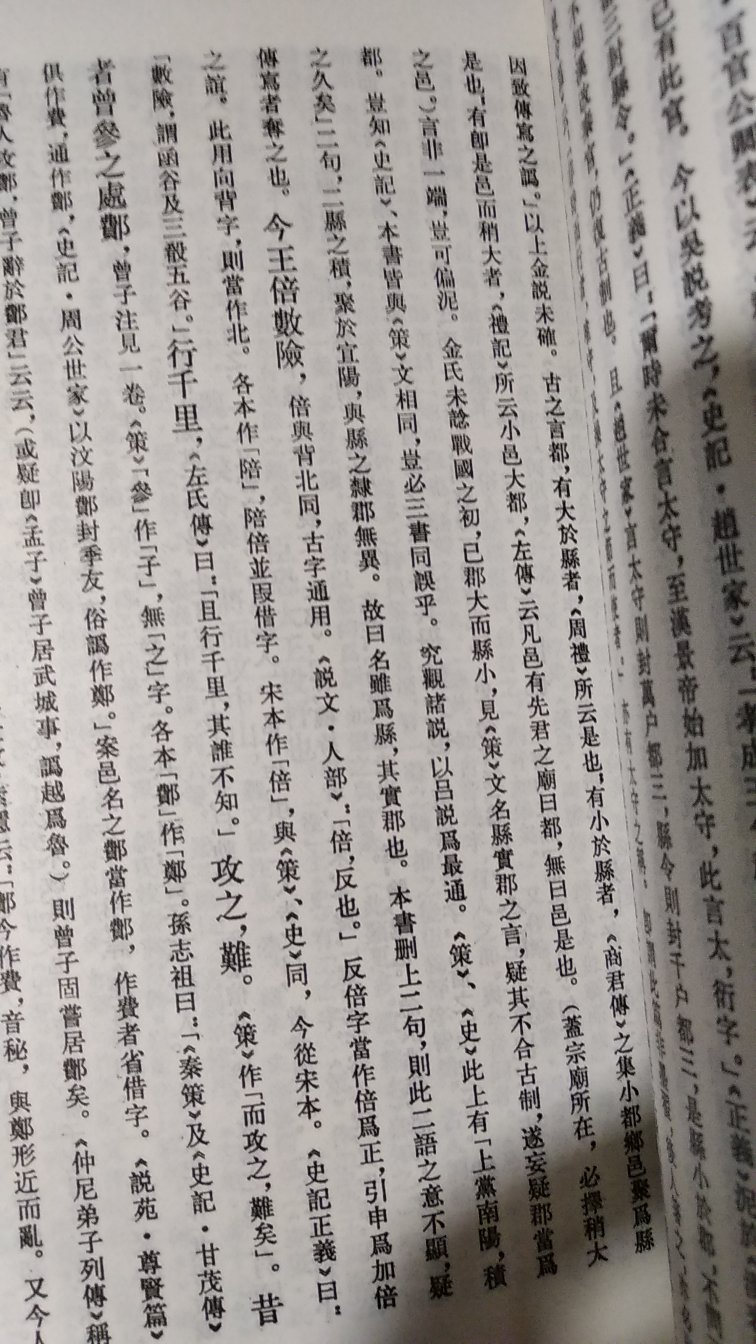 百官公卿表》云
己有此官。今以吳說考之,《史記·趙世家》云
三封縣令。」《正義》曰:「爾時未合言太守,至漢景帝始加太守,此言太,衍字。」《正義》
因致傳寫之譌。」以上金說未確。古之言都,有大於縣者,《周禮》所云是也;有小於縣者,《商君傳》之集小都鄉邑聚爲縣
是也;有卽是邑而稍大者,《禮記》所云小邑大都,《左傳》云凡邑有先君之廟曰都,無曰邑是也。(蓋宗廟所在,必擇稍大
之邑。)言非一端,豈可偏泥。金氏未諗戰國之初,已郡大而縣小,見《策》文名縣實郡之言,疑其不合古制,遂妄疑郡當爲
都。豈知《史記》、本書皆與《策》文相同,豈必三書同誤乎。究觀諸說,以吕說爲最通。《策》、《史》此上有「上黨南陽,積
之久矣」二句,二縣之積,聚於宜陽,與縣之隸郡無異。故曰名雖爲縣,其實郡也。本書删上二句,則此二語之意不顯,疑
傳寫者奪之也。今王倍數險,倍與背北同,古字通用。《說文·人部》:「倍,反也。」反倍字當作倍爲正,引申爲加倍
之誼。此用向背字,則當作北。各本作「陪」,陪倍並叚借字。宋本作「倍」,與《策》、《史》同,今從宋本。《史記正義》曰:
「數險,謂函谷及三殽五谷。」行千里,《左氏傳》曰:「且行千里,其誰不知。」攻之,難。《策》作「而攻之,難矣」。昔
者曾參之處鄪,曾子注見一卷。《策》「參」作「子」,無「之」字。各本「鄪」作「鄭」。孫志祖曰:「《秦策》及《史記·甘茂傳》
俱作費,通作鄪,《史記·周公世家》以汶陽鄪封季友,俗譌作鄭。」案邑名之鄪當作鄪,作費者省借字。《說苑·尊賢篇》
「魯人攻鄪,曾子辭於鄪君」云云,(或疑卽《孟子》曾子居武城事,譌越爲魯。)則曾子固嘗居鄪矣。《仲尼弟子列傳》稱
云:「鄪今作費,音秘,與鄭形近而亂。又今人